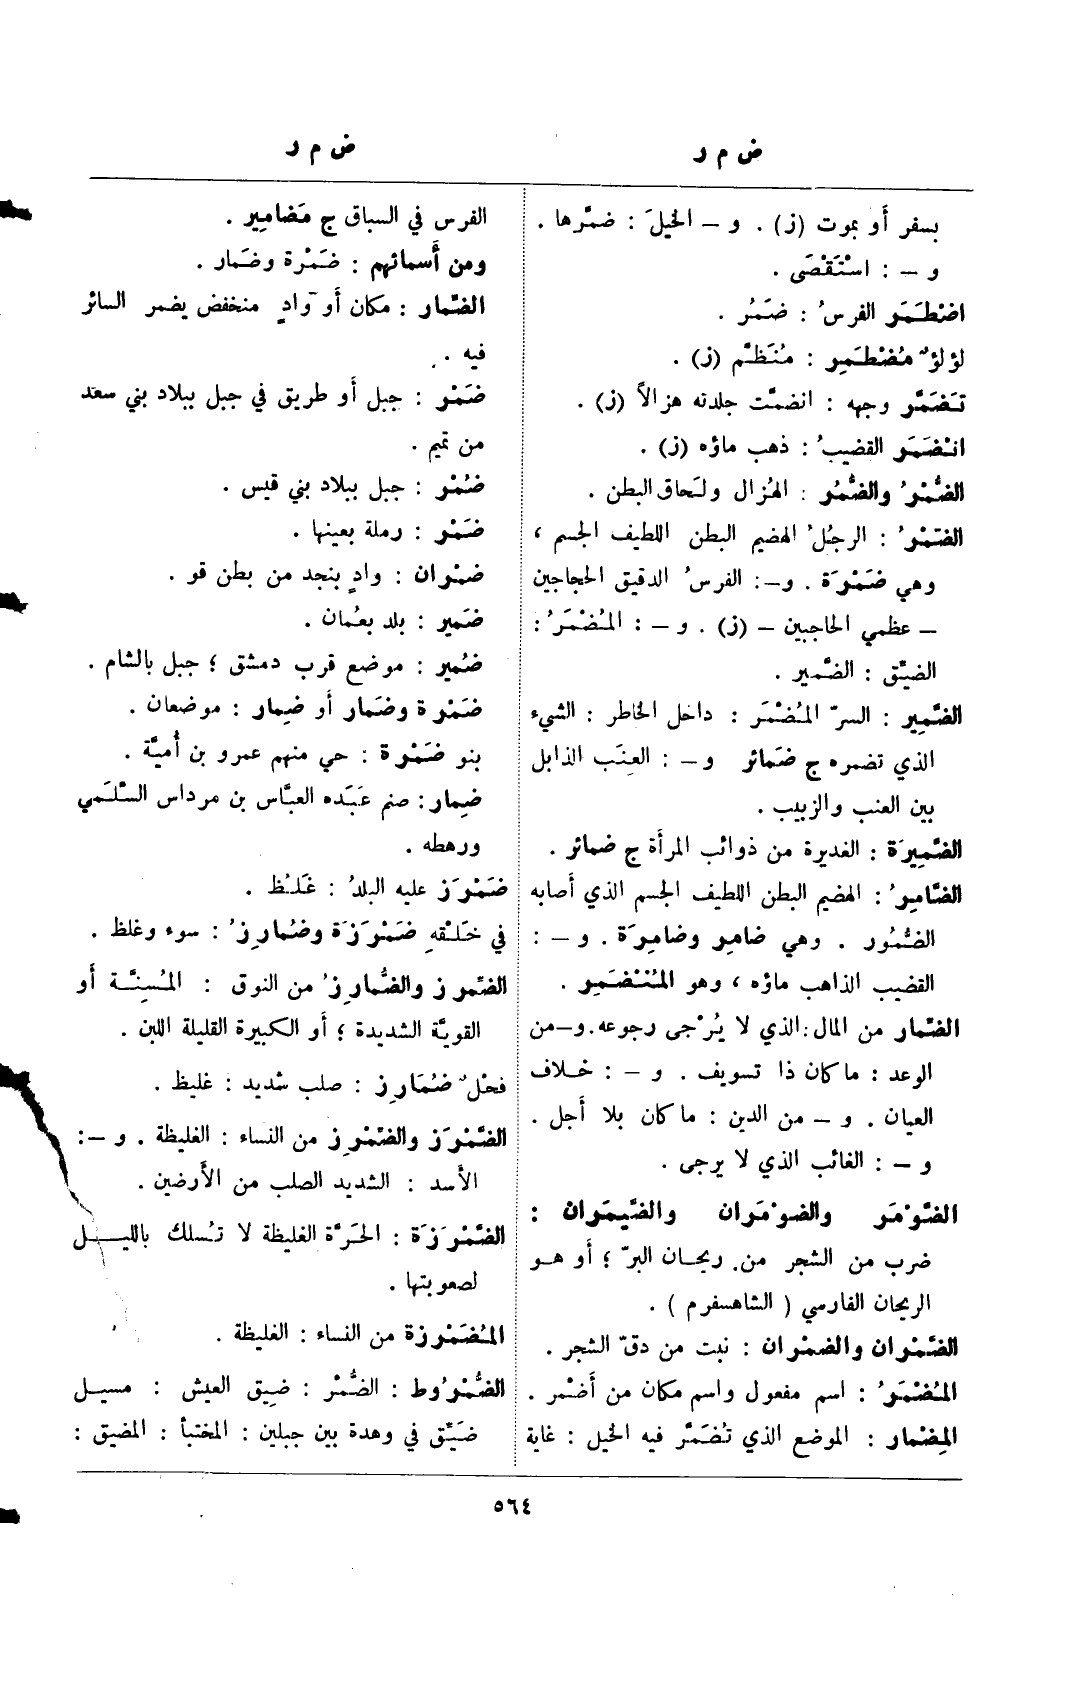 ض م ر
بسفر أو بموت (ز) . و – الخيلَ : ضمَّرها .
و – : اسْتَقْصَى .
اضْطَمَر الفرسُ : ضَمُر .
لؤلؤٌ مُضْطَمِر : مُنَظَّم (ز) .
تَضَمَّر وجهه : انضمَّت جلدته هزالاً (ز) .
انْضَمَر القضيبُ : ذهب ماؤه (ز) .
الضُّمْرُ والضُّمُر : الهُزال ولَحاق البطن .
الضَّمْرُ : الرجُلُ الهضيم البطن اللطيف الجسم ،
وهي ضَمْرَة . و– : الفرسُ الدقيق الحجاجين
– عظمي الحاجبين – (ز) . و – : المُضْمَرُ :
الضيّق : الضَّمير .
الضَّمِير : السرّ المُضْمَر : داخل الخاطر : الشيء
الذي تضمره ج ضَمائر و– : العِنَب الذابل
بين العنب والزبيب .
الضَّمِيرَة : الغديرة من ذوائب المرأة ج ضمائر .
الضَّامِرُ : الهضيم البطن اللطيف الجسم الذي أصابه
الضُّمُور . وهي ضامِر وضامِرَة . و – :
القضيب الذاهب ماؤه ، وهو المُنْضَمِر .
الضِّمار من المال : الذي لا يُرْجى رجوعه . و–من
الوعد : ما كان ذا تسويف . و – : خلاف
العيان . و – من الدين : ما كان بلا أجل .
و – : الغائب الذي لا يرجى .
الضَّوْمَر والضومَران والضَّيمَران :
ضرب من الشجر من ريحان البرّ ؛ أو هو
الريحان الفارسي ( الشاهسفرم ) .
الضَّمْران والضمْران : نبت من دقّ الشجر .
المُضْمَرُ : اسم مفعول واسم مكان من أضْمر .
المِضْمار : الموضع الذي تُضَمَّر فيه الخيل : غاية
ض م ر
الفرس في السباق ج مَضامِير .
ومن أسمائهم : ضَمْرة وضَمار .
الضَّمار : مكان أو وادٍ منخفض يضمر السائر
فيه .
ضَمْر : جبل أو طريق في جبل ببلاد بني سعد
من تميم .
ضُمْر : جبل ببلاد بني قيس .
ضَمْر : رملة بعينها .
ضمْران : وادٍ بنجد من بطن قو .
ضَمِير : بلد بعُمان .
ضُمير : موضع قرب دمشق ؛ جبل بالشام .
ضَمْرة وضَمار أو ضِمار : موضعان .
بنو ضَمْرة : حي منهم عمرو بن أُميَّة .
ضِمار : صنم عَبَده العبَّاس بن مرداس السُّلَمي
ورهطه .
ضَمْرَز عليه البلدُ : غَلُظ .
في خَلْقهِ ضَمْرَزَة وضُمارِزُ : سوء وغلظ .
الضِّمرِز والضُّمارِزُ من النوق : المُسِنَّة أو
القويَّة الشديدة ؛ أو الكبيرة القليلة اللبن .
فحْلٌ ضُمَارِز : صلب شديد : غليظ .
الضَّمْرَز والضِّمْرِز من النساء : الغليظة . و – :
الأسد : الشديد الصلب من الأرضين .
الضَّمْرَزَة : الحَرَّة الغليظة لا تُسلك بالليل
لصعوبتها .
المُضَمْرزة من النساء : الغليظة .
الضُّمْرُوط : الضُّمْر : ضيق العيش : مسيل
ضَيِّق في وهدة بين جبلين : المختبأ : المضيق :
٥٦٤